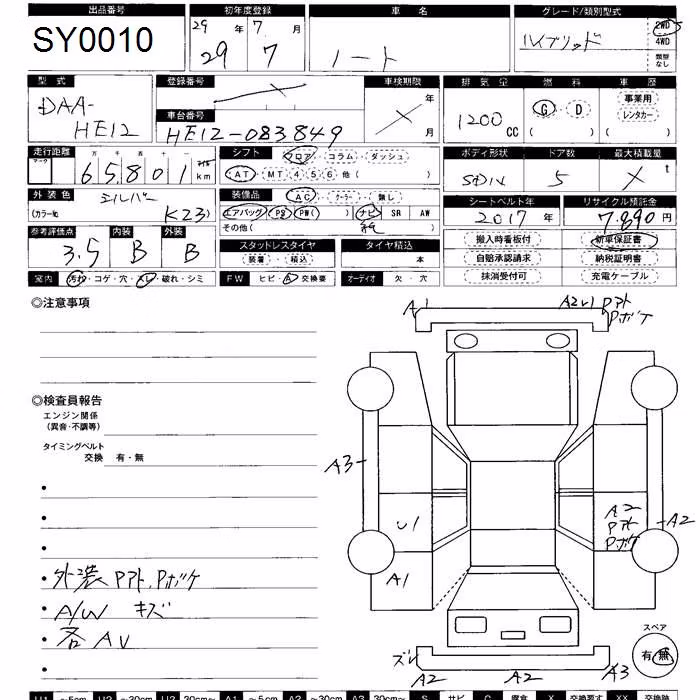 出品番号 初年度登録 車名 グレード/類別型式
SY0010 29年 7月 ノート ハイブリッド 2WD
29 7 4WD
類型なし
型式 登録番号 車検期限 排気量 燃料 車歴
DAA-HE12 X 年 1200CC G・D 事業用
車台番号 X 月 ( ) レンタカー
HE12-083849 ( )
走行距離 万 千 百 十 一 シフト フロア・コラム・ダッシュ ボディ形状 ドア数 最大積載量
マーク 6 5 8 0 1 km AT・MT 4 5 6 他( ) SDN 5 X t
外装色 シルバー 装備品 AC・クーラー・無し シートベルト年 リサイクル預託金
(カラー№ K23) エアバッグ PS PW( ) ナビ SR AW 2017年 7,890円
参考評価点 内装 外装 その他( ) 搬入時看板付 新車保証書
3.5 B B スタッドレスタイヤ タイヤ積込 自賠承認請求 納税証明書
装着・積込 本 抹消受付可 充電ケーブル
室内 汚れ・コゲ・穴・スレ・破れ・シミ FW ヒビ・A・交換要 オーディオ 欠・穴
◎注意事項
A1 A2 U1 Pアト
Pボケ
◎検査員報告
エンジン関係
(異音・不調等)
タイミングベルト
交換 有・無
A3
U1
A2
Pアト
Pボケ
A2
A1
・外装 Pアト、Pボケ
・A/W キズ
・各AU
スペア
有・無
ズレ
A2 A2 A3
U1 ~5cm U2 ~30cm U3 30cm~ A1 ~5cm A2 ~30cm A3 30cm~ S サビ C 腐食 X 交換要す XX 交換跡